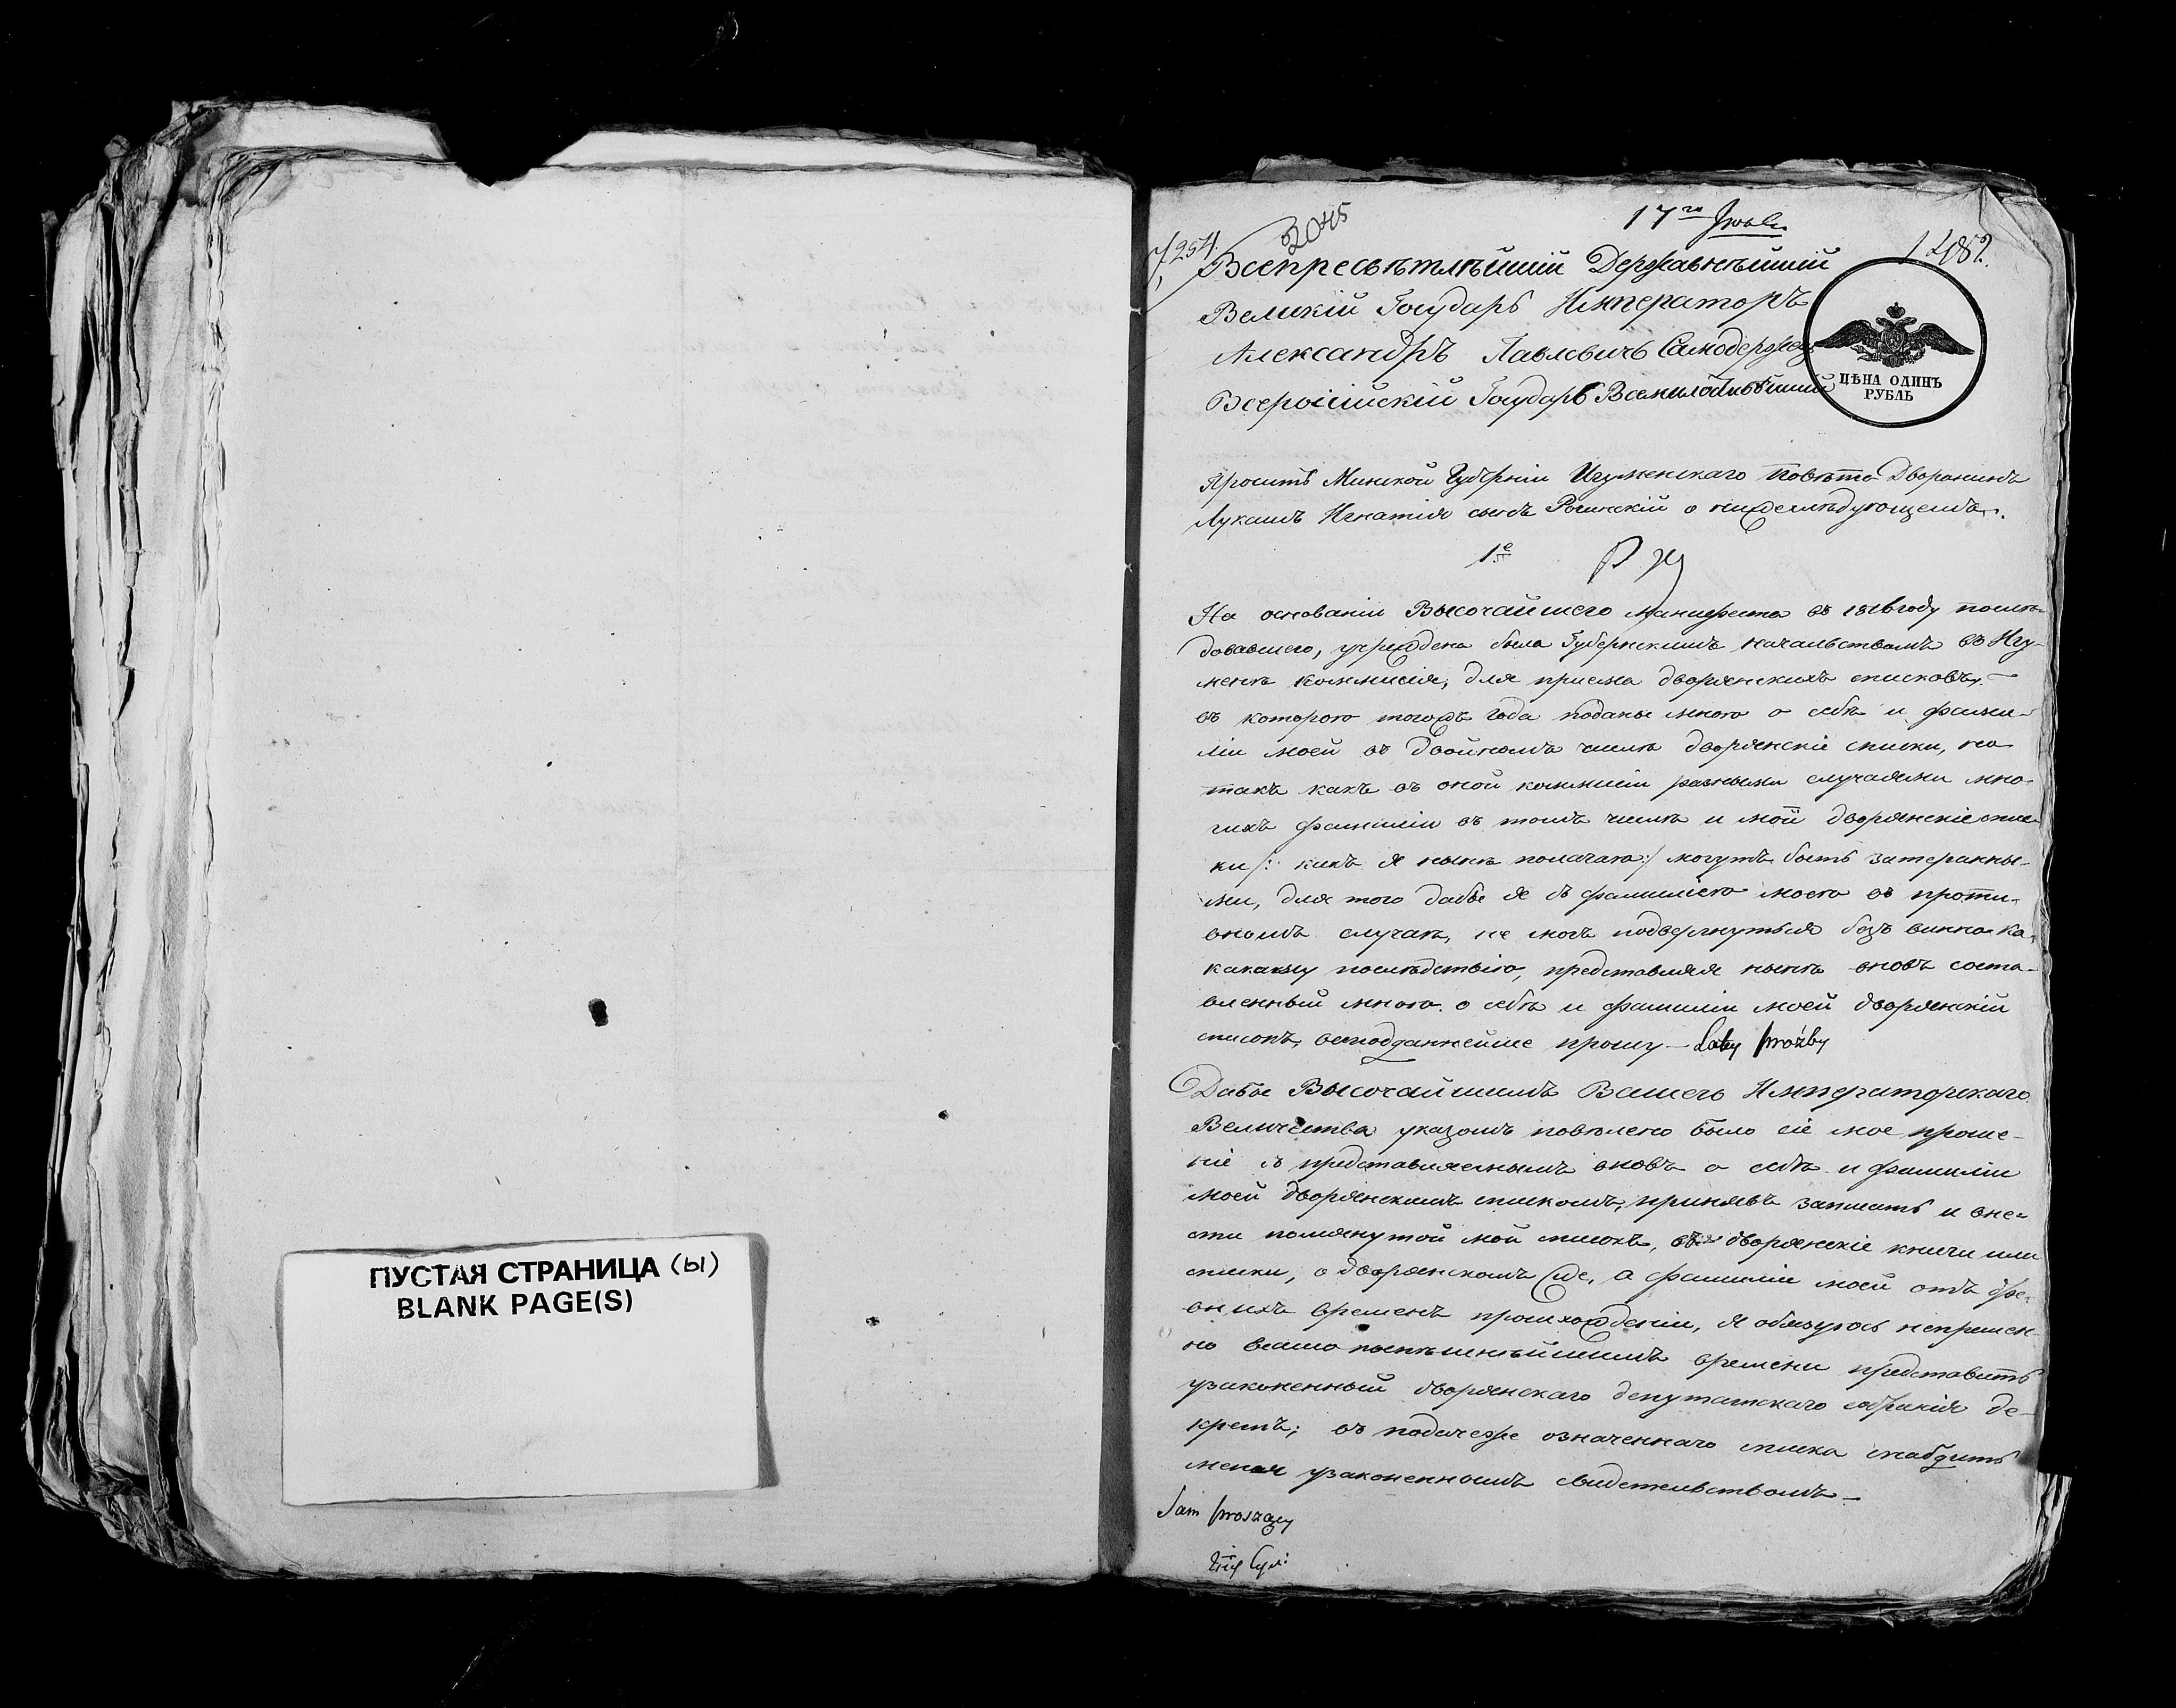 ПУСТАЯ СТРАНИЦА (ы)
BLANK PAGE(S)
3045
17го
7,254.
1 2082.
Всепресвѣтлѣйшій Державнѣйшій
Великій Государь Императоръ
Александръ Павловичь Самодержецъ
Всероссійскій Государь Всемилостивѣйшій
ЦѢНА ОДИНЪ
РУБЛЬ
Проситъ Минской Губерніи Игуменскаго Повѣта Дворанинъ
Лукашъ Игнатія сынъ о нижеслѣдующемъ.
1е
На основаніи Высочайшего Манифеста въ году послѣ-
довавшего, учреждена была Губернскимъ начальствомъ въ Игу-
менѣ коммисія, для пріема дворянскихъ списковъ,
въ которою тогожъ года поданы мною о себѣ и фами-
ліи моей въ двойномъ числѣ дворянскіе списки, но
такъ какъ въ оной коммисіи разными случаями мно-
гихъ фамиліи въ томъ числѣ и мои дворянскіе спис-
ки /: какъ я нынѣ полагаю :/ могутъ быть затеранны-
ми, для того дабы я съ фамиліею моею въ проти-
вномъ случаѣ, не могъ подвергнуться безъ винно ка-
какому послѣдствію, представляя нынѣ вновь соста-
вленный мною о себѣ и фамиліи моей дворянскій
списокъ, всеподданнейше прошу — Do tey proźby
Дабы Высочайшимъ Вашего Императорскаго
Величества указомъ повѣлено было сіе мое проше-
ніе съ представляемымъ вновь о себѣ и фамиліи
моей дворянскимъ спискомъ, принявъ записать и вне-
сти помянутой мой списокъ, въ дворянскіе книги или
списки, о дворянскомъ же, а фамиліи моей отъ дре-
внихъ временъ происхожденіи, я обязуюсь непремен-
но времени представить
узаконенный дворянскаго депутатскаго собранія де-
кретъ; въ подачеже означеннаго списка снабдить
меня узаконеннымъ свидетельствомъ —
Sam proszący